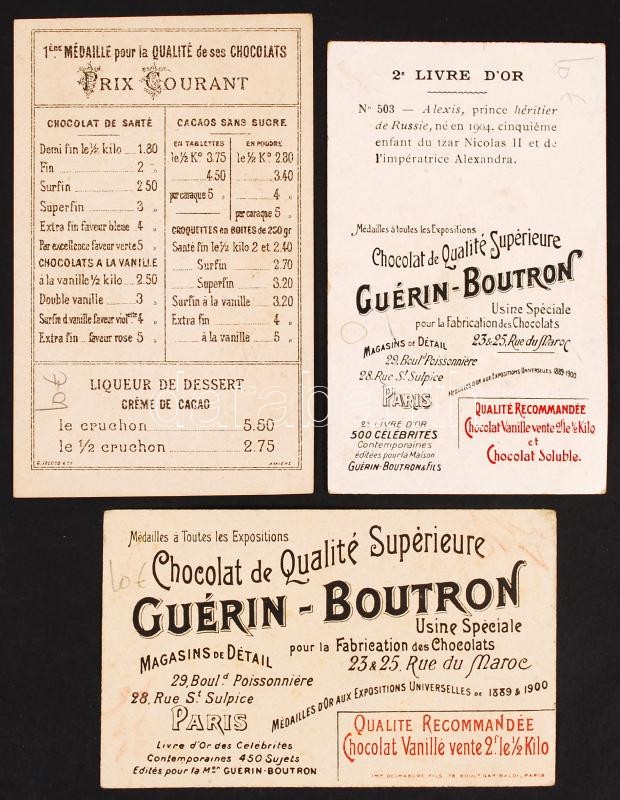 1ÈRE MÉDAILLE pour la QUALITÉ de ses CHOCOLATS
PRIX COURANT
CHOCOLAT DE SANTÉ
Demi fin le ½ kilo 1.80
Fin 2 "
Surfin 2 50
Superfin 3 "
Extra fin faveur bleue 4 "
Par excellence faveur verte 5 "
CHOCOLATS A LA VANILLE
à la vanille ½ kilo 2.50
Double vanille 3 "
Surfin d. vanille faveur violtte 4 "
Extra fin faveur rose 5 "
CACAOS SANS SUCRE
EN TABLETTES
le ½ Ko 3.75
4.50
par caraque 5 "
EN POUDRE
le ½ Ko 2.80
3.40
4 "
par caraque 5 "
CROQUETTES en BOITES de 250 gr
Santé fin le ½ kilo 2 et 2.40
Surfin 2.70
Superfin 3.20
Surfin à la vanille 3.20
Extra fin 4 "
à la vanille 5 "
LIQUEUR DE DESSERT
CRÈME DE CACAO
le cruchon 5.50
le ½ cruchon 2.75
AMIENS
10€
2e LIVRE D'OR
No 503 — Alexis, prince héritier
de Russie, né en 1904, cinquième
enfant du tzar Nicolas II et de
l'impératrice Alexandra.
Médailles à toutes les Expositions
Chocolat de Qualité Supérieure
GUÉRIN-BOUTRON
Usine Spéciale
pour la Fabrication des Chocolats
MAGASINS DE DÉTAIL
23 & 25, Rue du Maroc
29, Boult Poissonnière
28, Rue St Sulpice
PARIS
MÉDAILLES D'OR AUX EXPOSITIONS UNIVERSELLES 1889-1900
2e LIVRE D'OR
500 CÉLÉBRITÉS
Contemporaines
éditées pour la Maison
GUÉRIN-BOUTRON & FILS
QUALITÉ RECOMMANDÉE
Chocolat Vanille vente 2f le ½ Kilo
et
Chocolat Soluble.
darabanth
Médailles à Toutes les Expositions
Chocolat de Qualité Supérieure
GUÉRIN-BOUTRON
Usine Spéciale
pour la Fabrication des Chocolats
MAGASINS DE DÉTAIL
23 & 25, Rue du Maroc
29, Bould Poissonnière
28, Rue St Sulpice
PARIS
MÉDAILLES D'OR AUX EXPOSITIONS UNIVERSELLES DE 1889 & 1900
Livre d'Or des Célébrités
Contemporaines 450 Sujets
Edités pour la Mon GUÉRIN-BOUTRON
QUALITÉ RECOMMANDÉE
Chocolat Vanillé vente 2f le ½ Kilo
10€